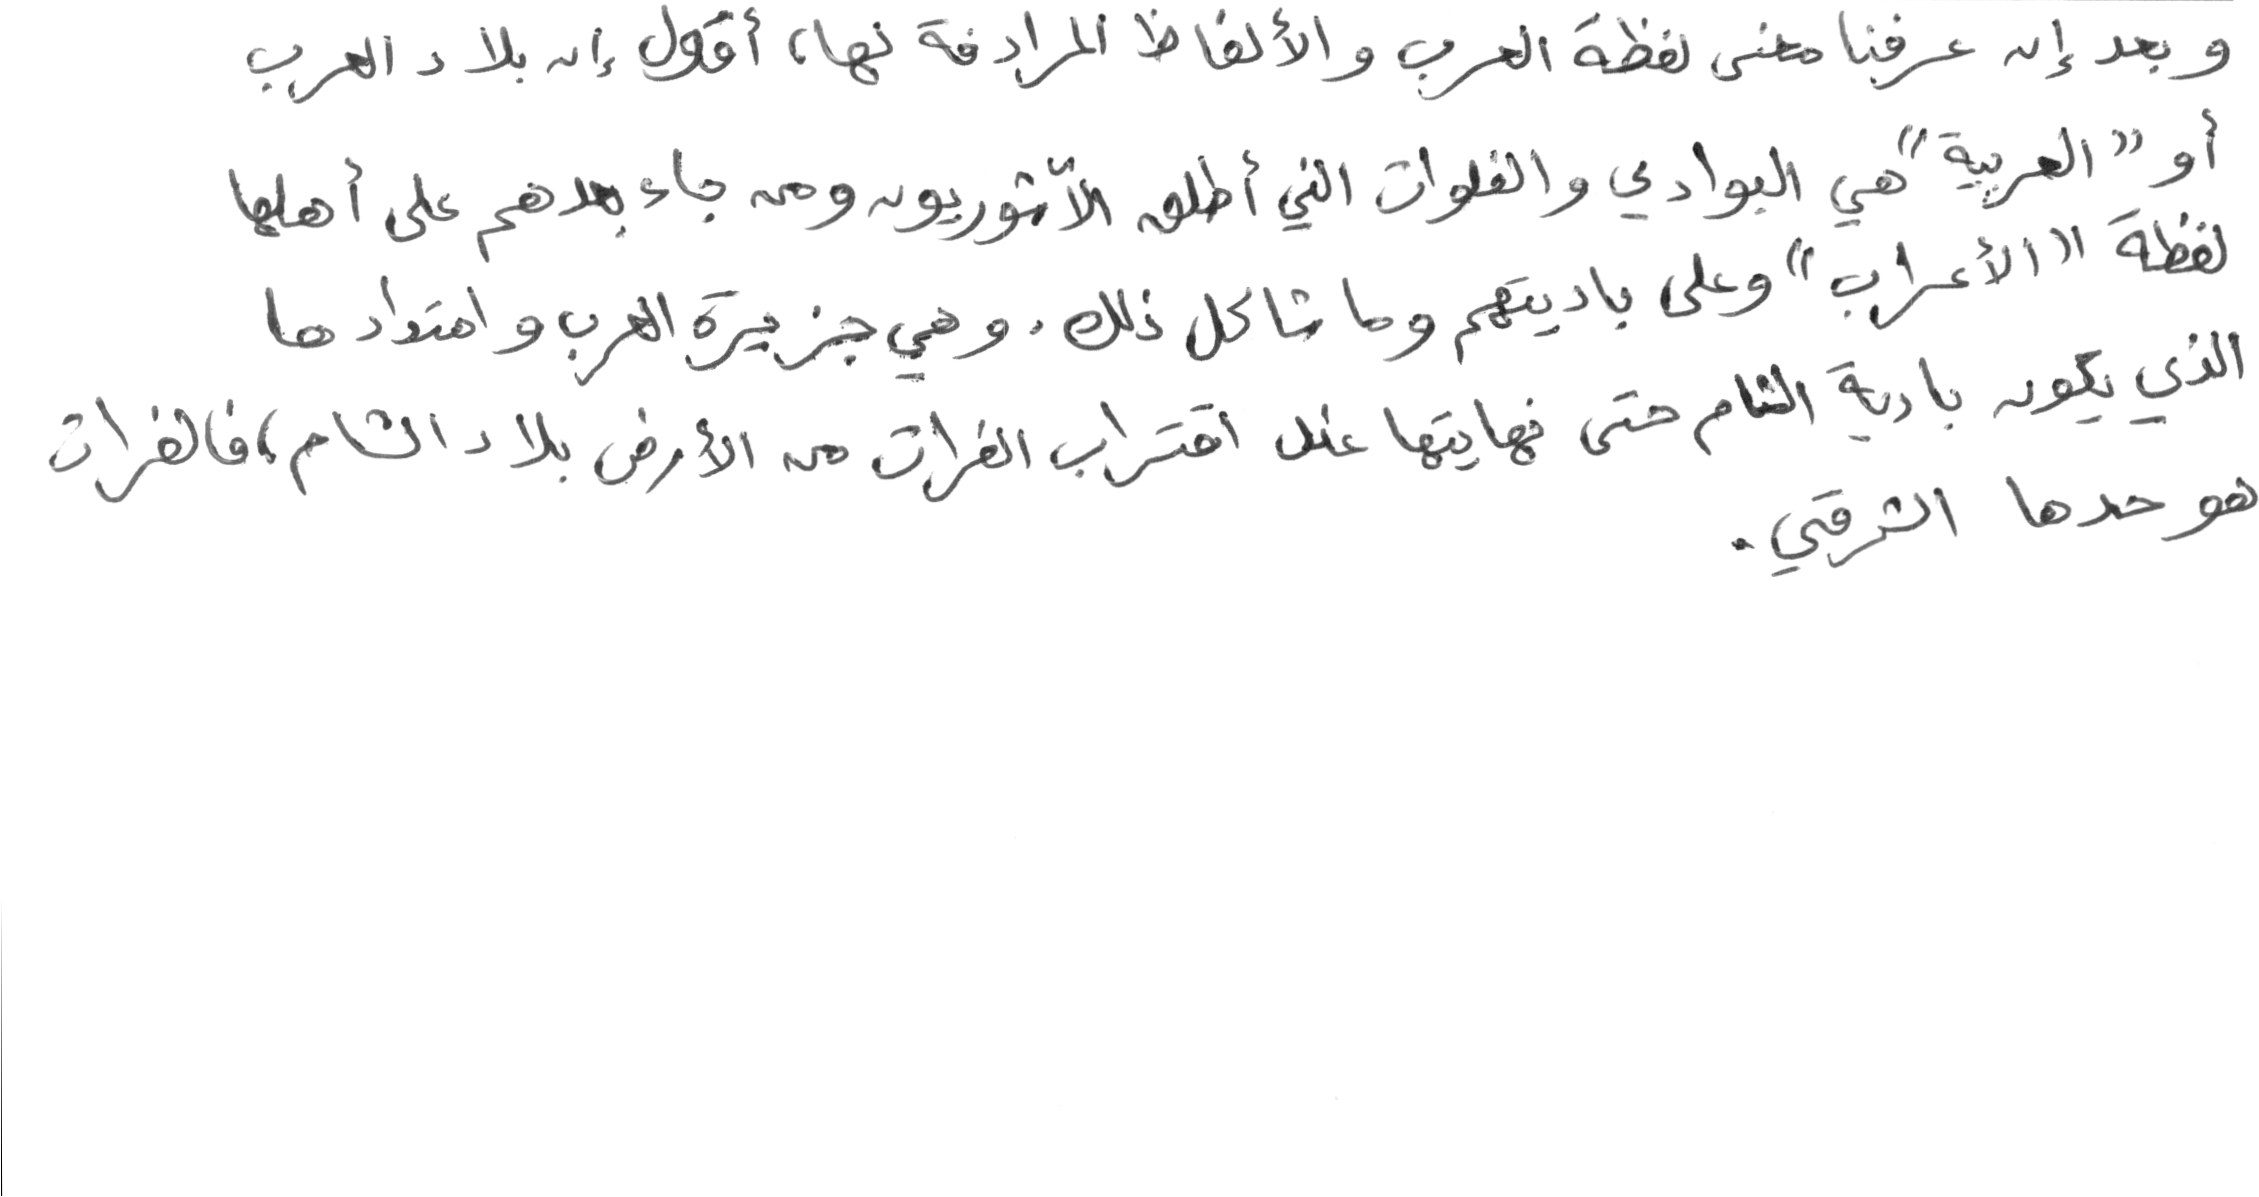 وبعد إن عرفنا معنى لفظة العرب والألفاظ المرادفة لها، أقول إن بلاد العرب
أو "العربية" هي البوادي والفلوات التي أطلق الآشوريون ومن جاء بعدهم على أهلها
لفظة "الأعراب" وعلى باديتهم وما شاكل ذلك. وهي جزيرة العرب وامتدادها
الذي يكون بادية الشام حتى نهايتها عند اقتراب الفرات من الأرض بلاد الشام، فالفرات
هو حدها الشرقي.